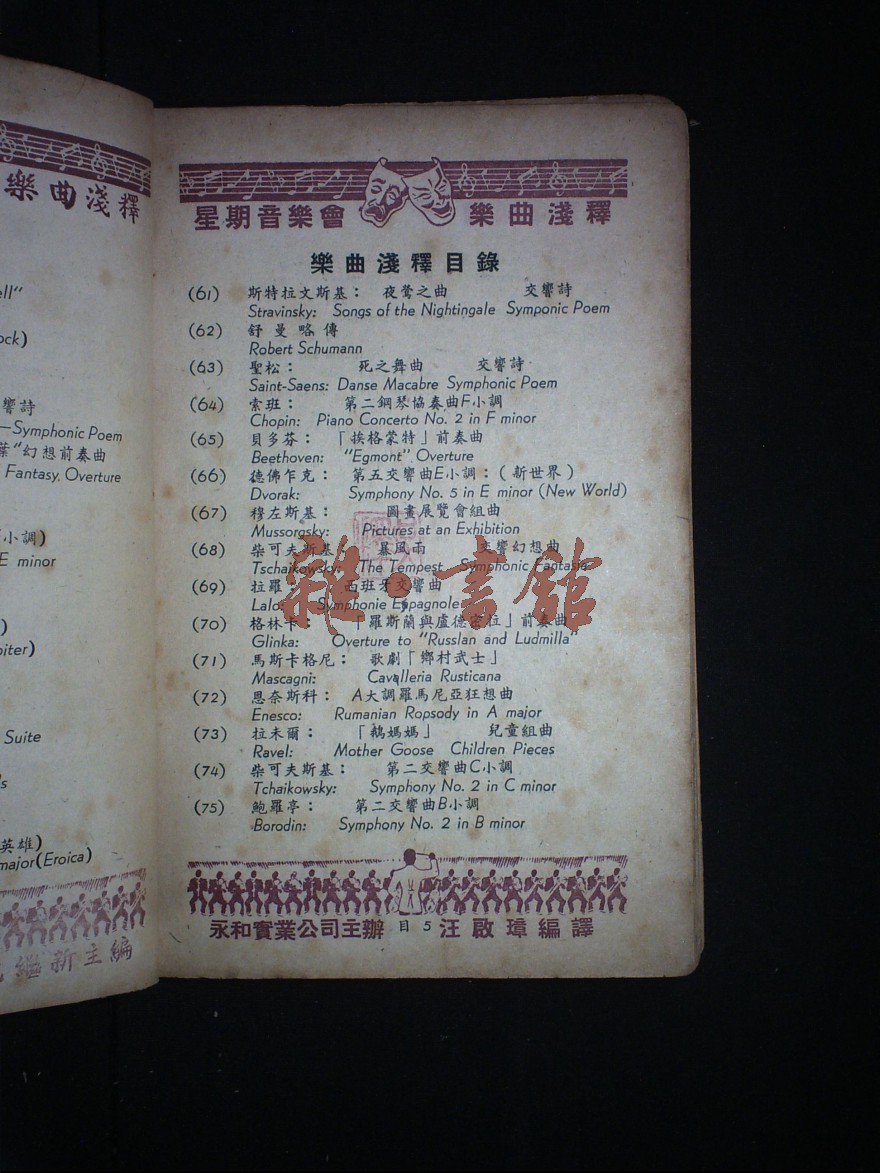 樂曲淺釋
ell"
ock)
響詩
—Symphonic Poem
葉"幻想前奏曲
Fantasy, Overture
小調)
E minor
)
piter)
Suite
ls
英雄)
major(Eroica)
繼新主編
星期音樂會 樂曲淺釋
樂曲淺釋目錄
(61) 斯特拉文斯基: 夜鶯之曲 交響詩
Stravinsky: Songs of the Nightingale Symponic Poem
(62) 舒曼略傳
Robert Schumann
(63) 聖松: 死之舞曲 交響詩
Saint-Saens: Danse Macabre Symphonic Poem
(64) 索班: 第二鋼琴協奏曲F小調
Chopin: Piano Concerto No. 2 in F minor
(65) 貝多芬: 「挨格蒙特」前奏曲
Beethoven: "Egmont" Overture
(66) 德佛乍克: 第五交響曲E小調:(新世界)
Dvorak: Symphony No. 5 in E minor (New World)
(67) 穆左斯基: 圖畫展覽會組曲
Mussorgsky: Pictures at an Exhibition
(68) 柴可夫斯基: 暴風雨 交響幻想曲
Tschaikowsky: The Tempest Symphonic Fantasia
(69) 拉羅: 西班牙交響曲
Lalo: Symphonie Espagnole
雜·書館
(70) 格林卡: 「羅斯蘭與盧德密拉」前奏曲
Glinka: Overture to "Russlan and Ludmilla"
(71) 馬斯卡格尼: 歌劇「鄉村武士」
Mascagni: Cavalleria Rusticana
(72) 恩奈斯科: A大調羅馬尼亞狂想曲
Enesco: Rumanian Ropsody in A major
(73) 拉未爾: 「鵝媽媽」 兒童組曲
Ravel: Mother Goose Children Pieces
(74) 柴可夫斯基: 第二交響曲C小調
Tchaikowsky: Symphony No. 2 in C minor
(75) 鮑羅亭: 第二交響曲B小調
Borodin: Symphony No. 2 in B minor
永和實業公司主辦 目5 汪啟璋編譯